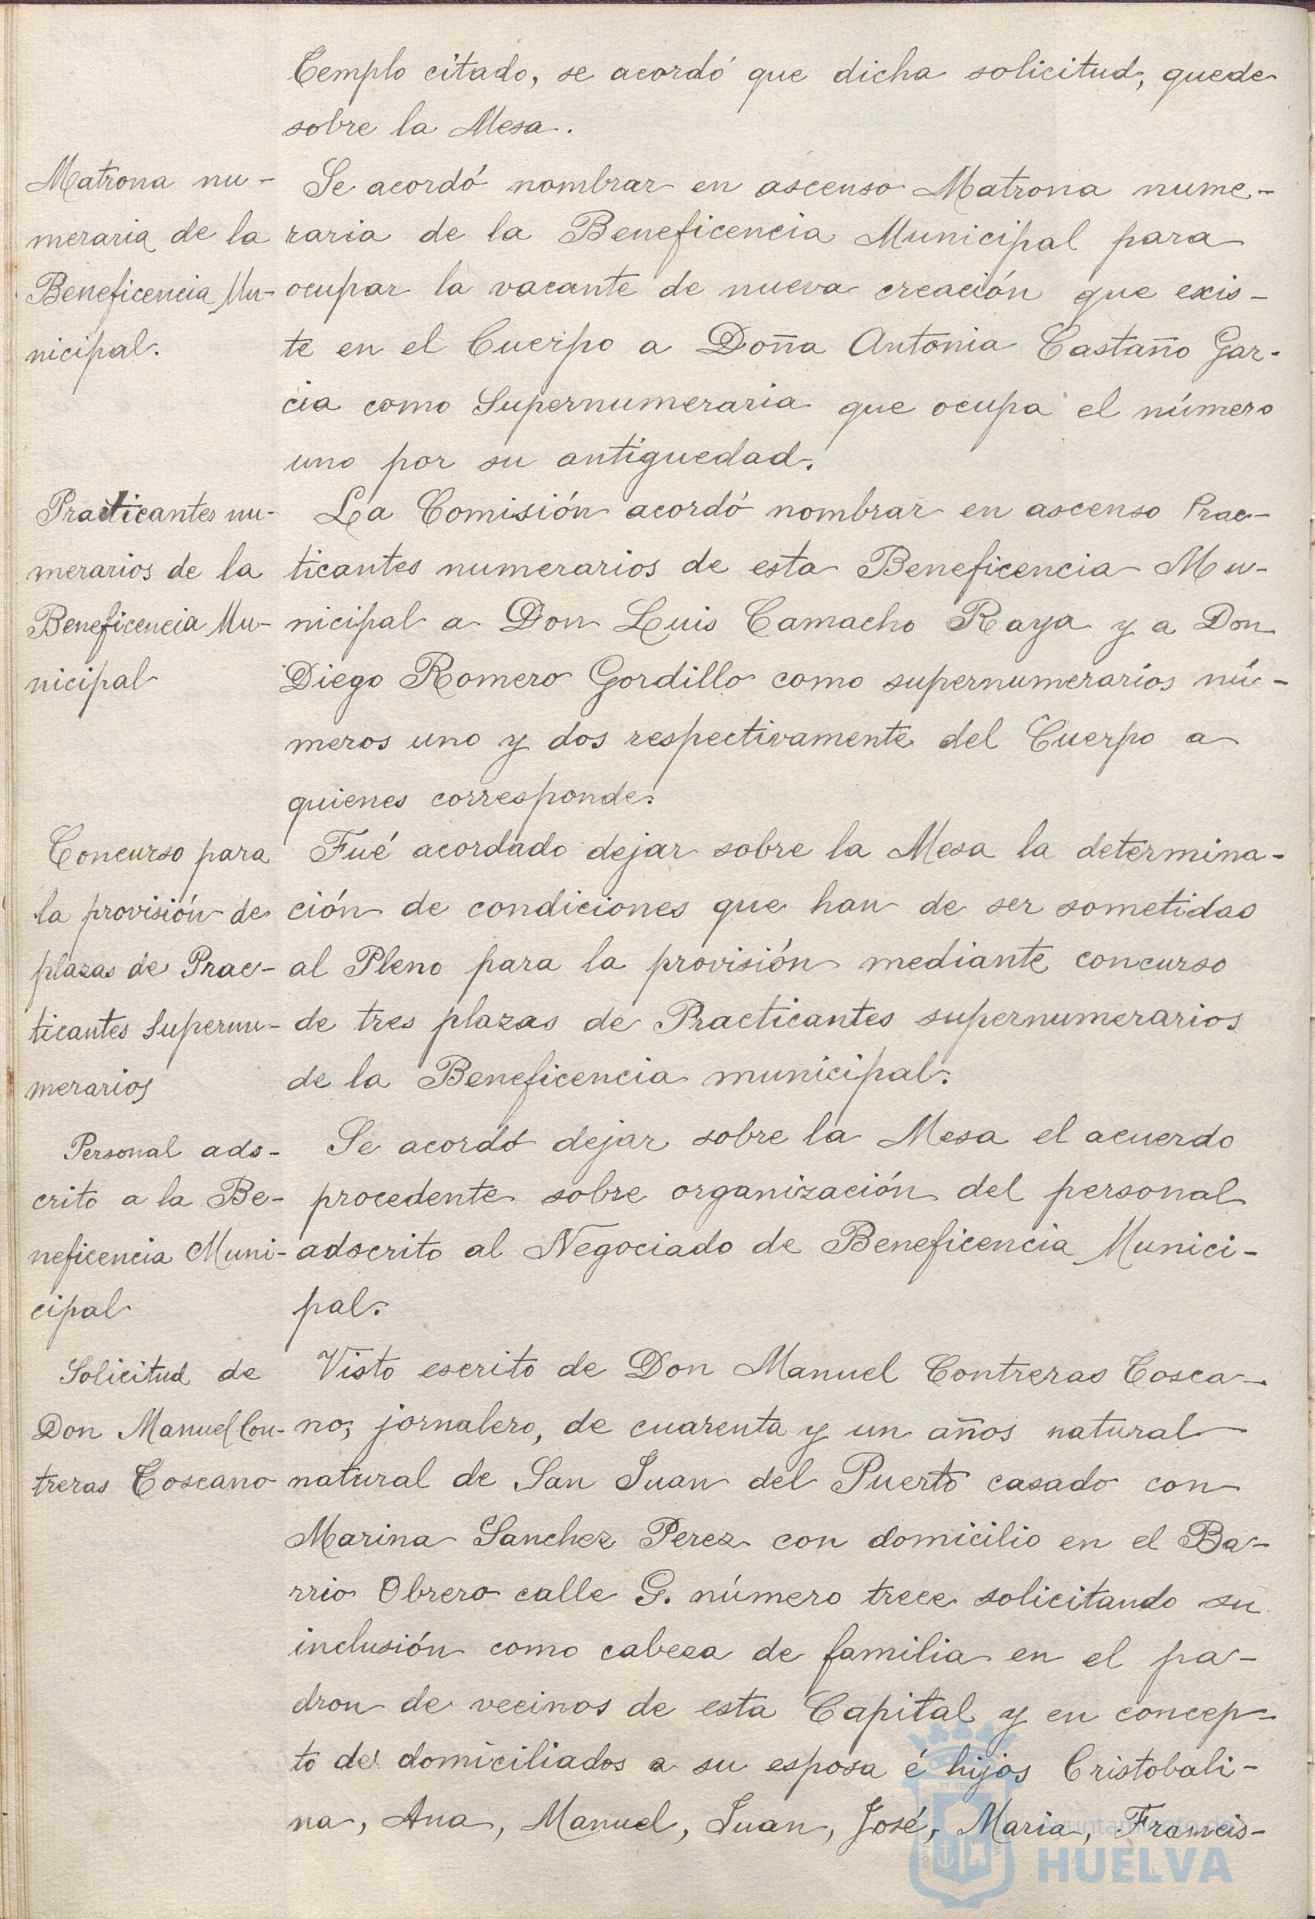 Templo citado, se acordó que dicha solicitud, quede
sobre la Mesa.
Matrona nu-
meraria de la
Beneficencia Mu-
nicipal.
Se acordó nombrar en ascenso Matrona nume-
raria de la Beneficencia Municipal para
ocupar la vacante de nueva creación que exis-
te en el Cuerpo a Doña Antonia Castaño Gar-
cia como Supernumeraria que ocupa el número
uno por su antiguedad.
Practicantes nu-
merarios de la
Beneficencia Mu-
nicipal
La Comisión acordó nombrar en ascenso Prac-
ticantes numerarios de esta Beneficencia Mu-
nicipal a Don Luis Camacho Raya y a Don
Diego Romero Gordillo como supernumerarios nú-
meros uno y dos respectivamente del Cuerpo a
quienes corresponde.
Concurso para
la provisión de
plazas de Prac-
ticantes Supernu-
merarios
Fué acordado dejar sobre la Mesa la determina-
ción de condiciones que han de ser sometidas
al Pleno para la provisión mediante concurso
de tres plazas de Practicantes supernumerarios
de la Beneficencia municipal.
Personal ads-
crito a la Be-
neficencia Muni-
cipal
Se acordó dejar sobre la Mesa el acuerdo
procedente sobre organización del personal
adscrito al Negociado de Beneficencia Munici-
pal.
Solicitud de
Don Manuel Con-
treras Toscano
Visto escrito de Don Manuel Contreras Tosca-
no, jornalero, de cuarenta y un años natural
natural de San Juan del Puerto casado con
Marina Sanchez Perez con domicilio en el Ba-
rrio Obrero calle G. número trece solicitando su
inclusión como cabeza de familia en el pa-
dron de vecinos de esta Capital y en concep-
to de domiciliados a su esposa é hijos Cristobali-
na, Ana, Manuel, Juan, José, Maria, Francis-
Ayuntamiento de
HUELVA